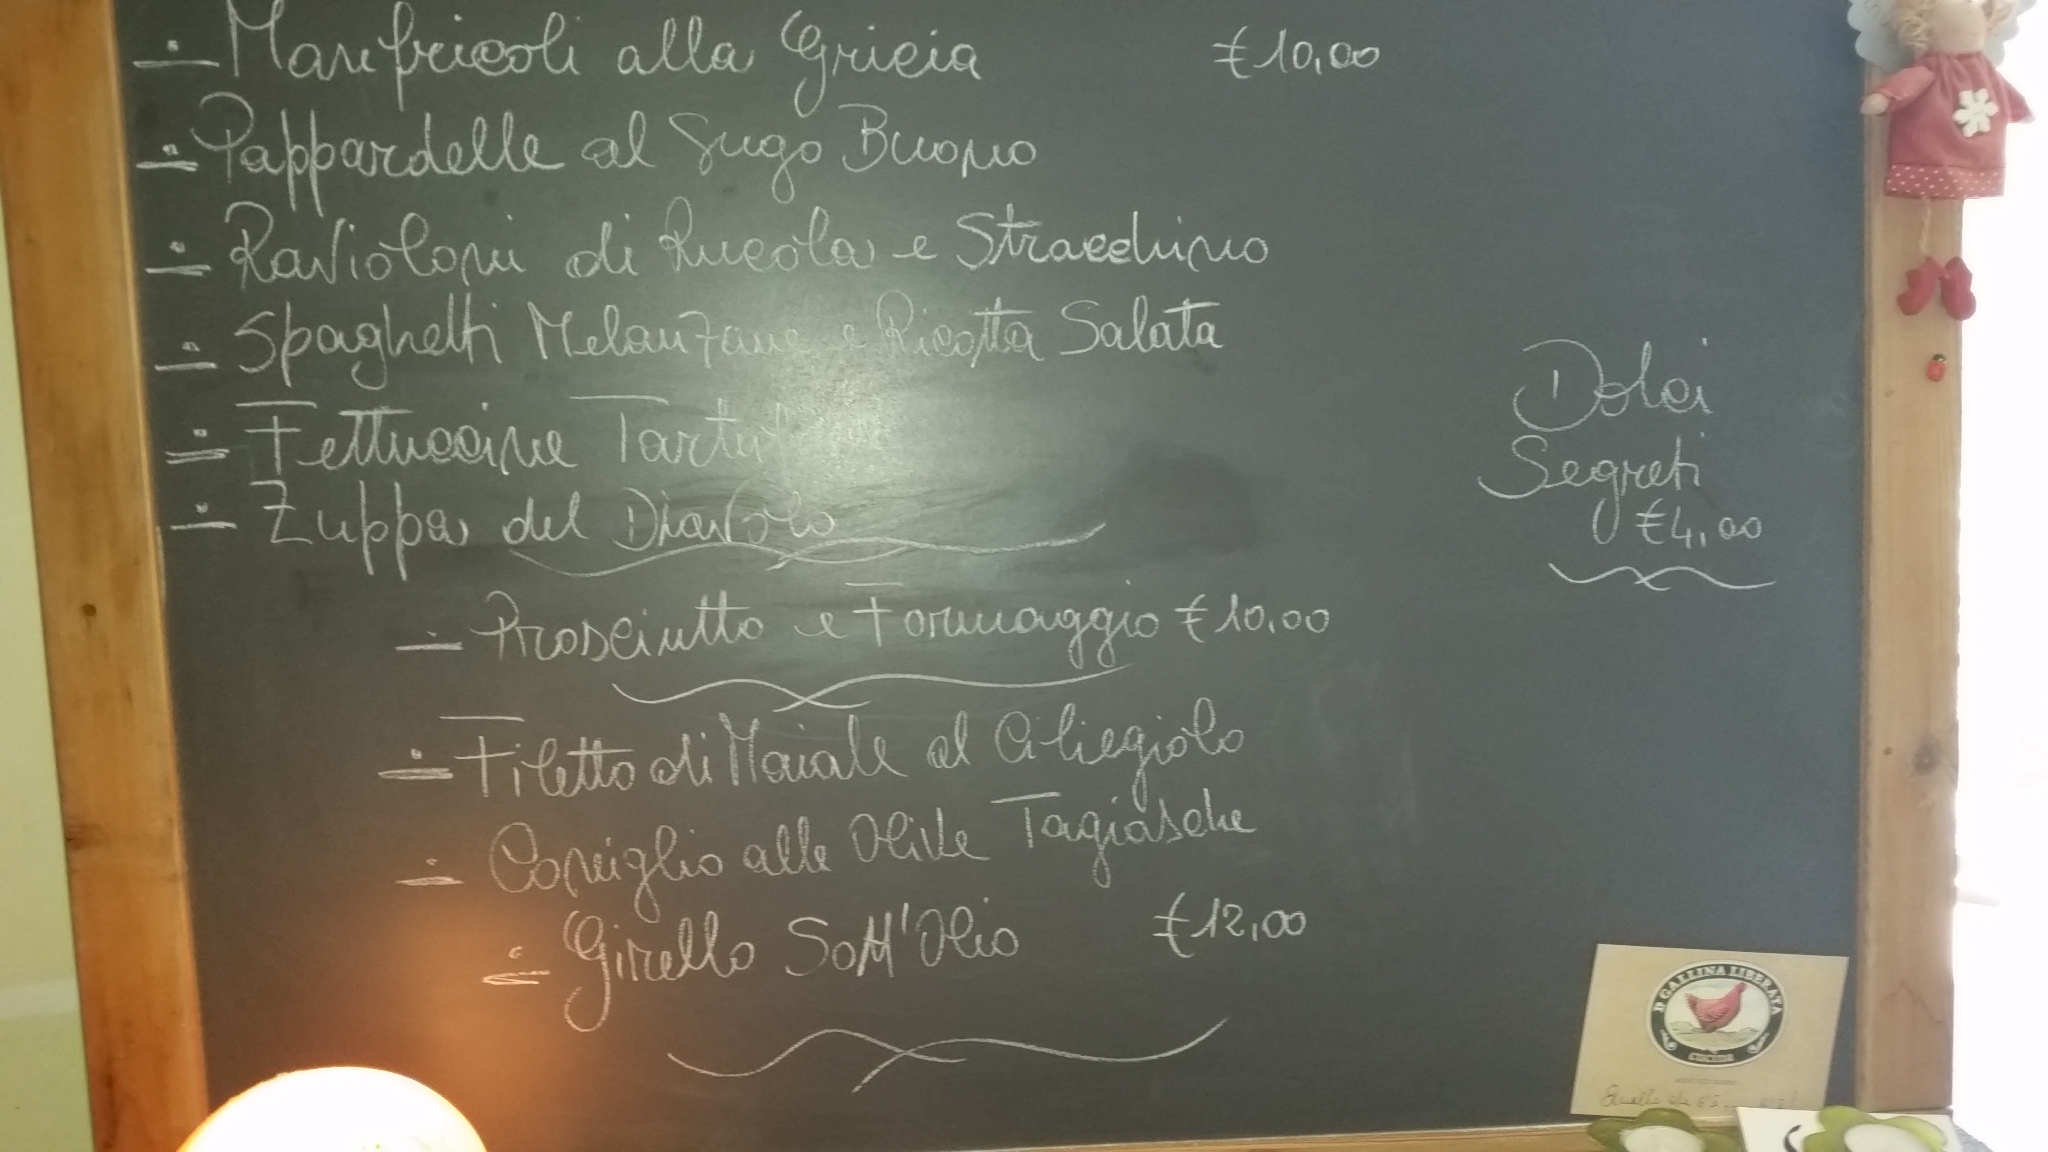 Manfricoli alla Gricia €10,00
Pappardelle al Sugo Buono
Ravioloni di Rucola e Stracchino
Spaghetti Melanzane e Ricotta Salata
Fettuccine
Zuppa del Diavolo
Prosciutto e Formaggio €10,00
Filetto di Maiale al Ciliegiolo
Coniglio alle Olive Tagiasche
Girello Sott'Olio €12,00
Dolci
Segreti
€4,00
GALLINA LIBERATA